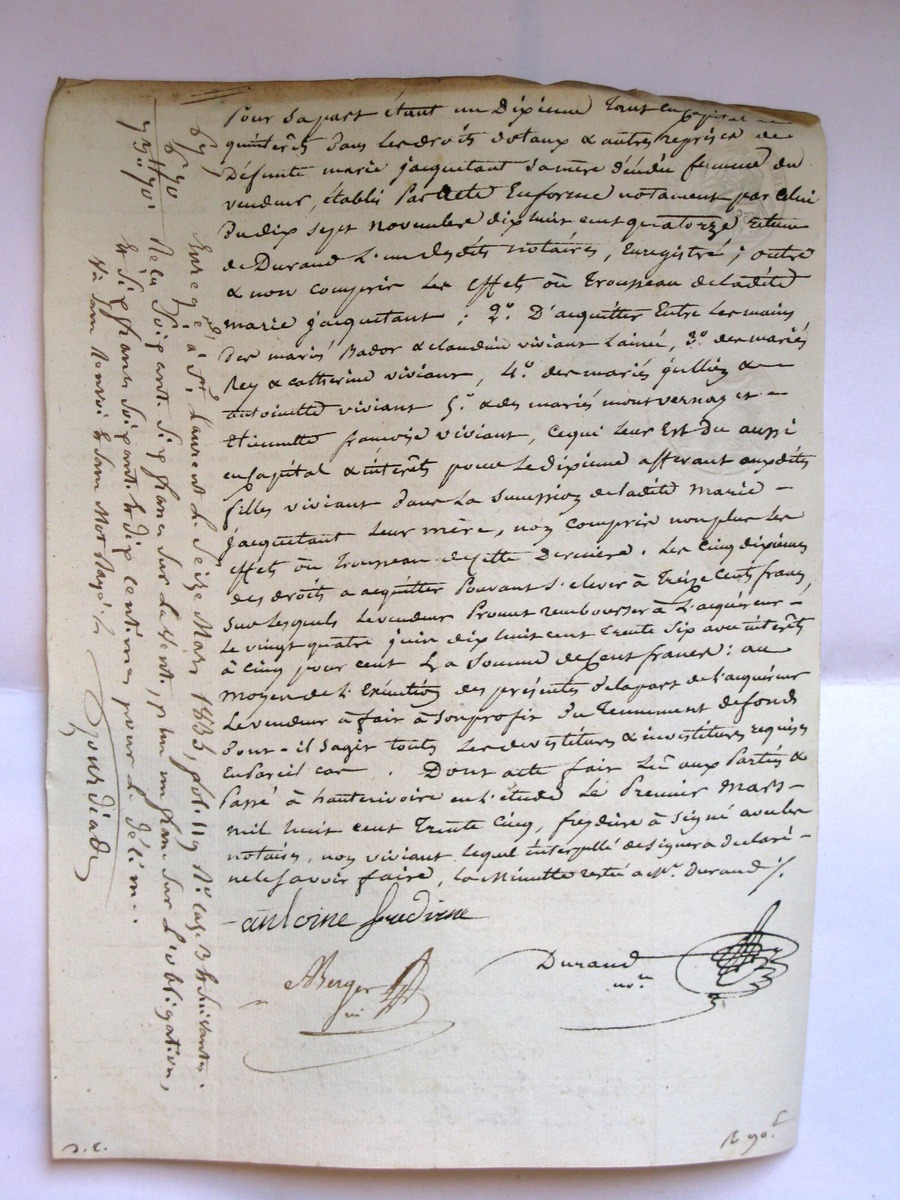 Pour sa part étant un Dixième tant en Capital
qu'intérêts dans les droits dotaux & autres reprises de
Défunte marie jacquetant sa mère décédée femme du
vendeur, établis par acte En forme notament par celui
Du dix sept novembre dix huit cent quatorze, reçu
de Durand L'un desdits notaires, Enregistré ; outre
& non compris Les Effets ou Trousseau de ladite
marie jacquetant ; 2.° D'acquitter Entre Les mains
des mariés Bador & claudine viviant L'ainée, 3.° des mariés
Rey & catherine viviant, 4.° des mariés &
antoinette viviant 5.° & des mariés montvernay et
Etiennette françoise viviant, ce qui leur Est Du aussi
en Capital & intérêts pour Le dixième afferant auxdites
filles viviant dans La succession de ladite Marie
jacquetant Leur mère, non compris non plus Les
effets ou Trousseau de cette Dernière. Les cinq dixièmes
des droits a acquitter Pouvant s'elever à Treize Cents francs,
sur lesquels Le vendeur Promet rembourser à L'acquéreur
Le vingt quatre juin dix huit cent Trente six avec intérêts
à Cinq pour cent La Somme de Cent francs : au
moyen de L'Exécution des présentes de la part de L'acquéreur
Le vendeur à fait à son profit Du Tennement de fonds
Dont il s'agit toutes Les devestitures & investitures requises
En Pareil cas. Dont acte fait Lu aux Parties &
Passé à hauterivoire en L'étude Le Premier Mars
mil huit cent Trente Cinq, freydière à Signé avec les
notaires, non viviant Lequel interpellé de signer a declaré
ne le savoir faire, La Minutte restée a M.e Durand /.
antoine freydiere
ABerger
n.re
Durand
no.re
67
6 90
73 90.
Enregistré à S.t Laurent Le Seize Mars 1835, fol. 119 N.° Case 3 & Suivantes.
Reçu Soixante Sept francs Sur La vente, un franc Sur L'obligation,
Et Six francs quatre vingt dix centimes pour Le Décime.
Gourdiade
R 90.